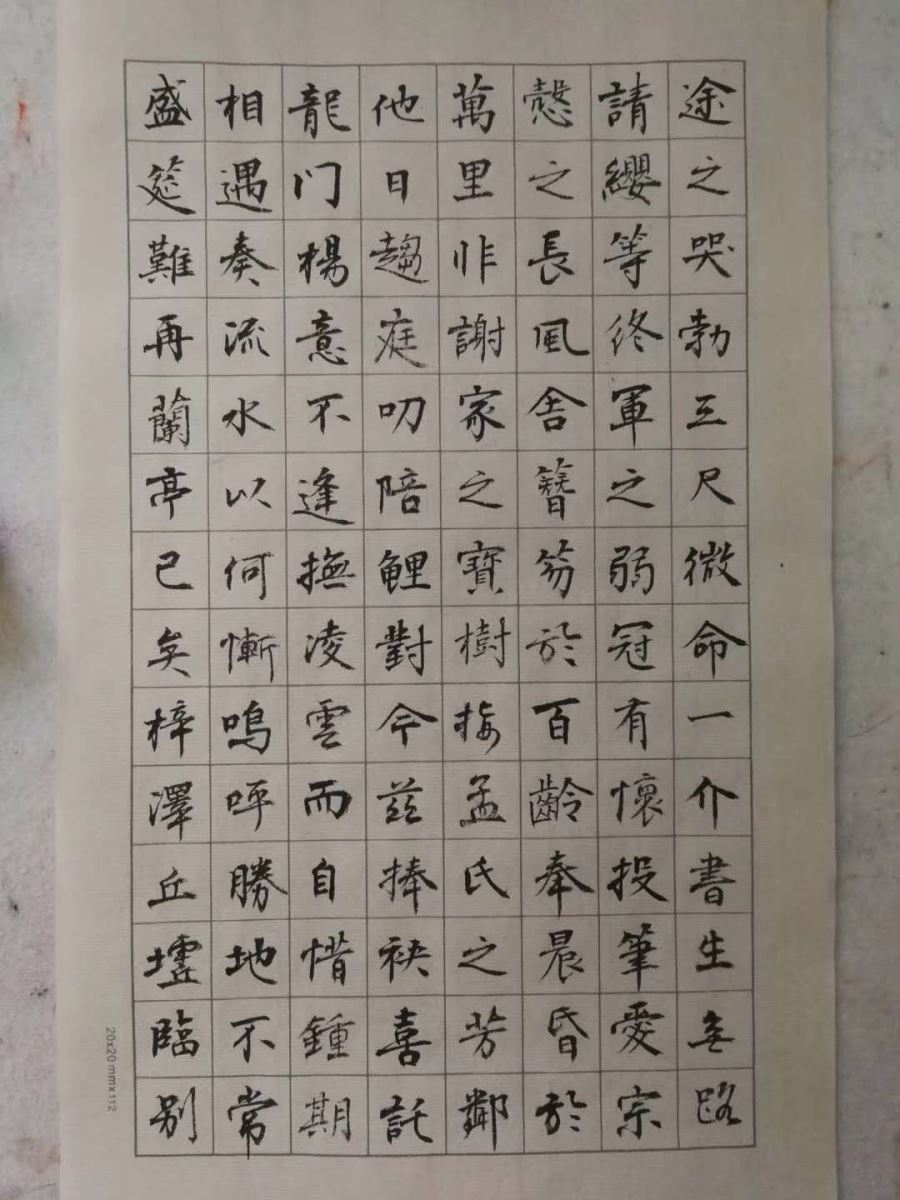 途之哭勃三尺微命一介書生無路
請纓等終軍之弱冠有懷投筆愛宗
慤之長風舍簪笏於百齡奉晨昏於
萬里非謝家之寶樹接孟氏之芳鄰
他日趨庭叨陪鯉對今茲捧袂喜託
龍门楊意不逢撫凌雲而自惜鍾期
相遇奏流水以何慚嗚呼勝地不常
盛筵難再蘭亭已矣梓澤丘墟臨别
20x20 mmx112